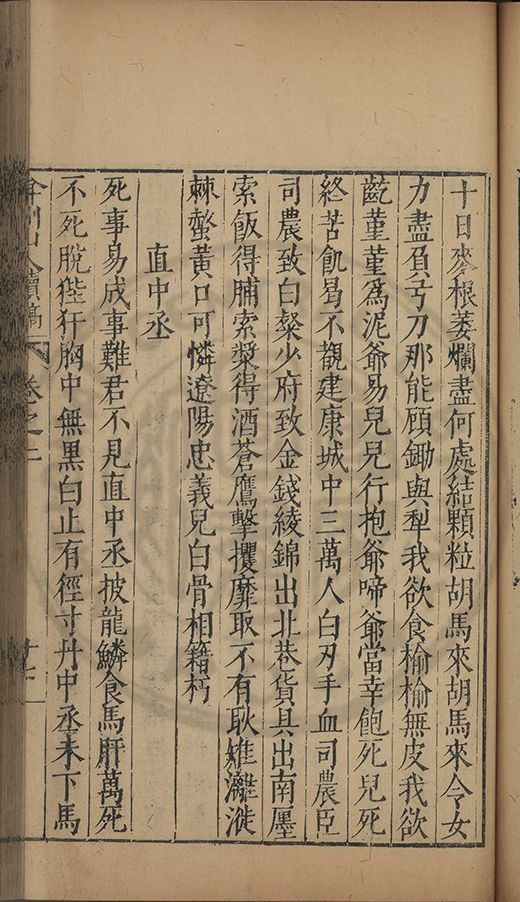 十日麥根萎爛盡何處結顆粒胡馬來胡馬來令女
力盡負弓刀那能顧鋤與犁我欲食榆榆無皮我欲
齕菫菫爲泥爺易兒兒行抱爺啼爺當幸飽死兒死
終苦飢曷不觀建康城中三萬人白刃手血司農臣
司農致白粲少府致金錢綾錦出北巷貨具出南廛
索飯得脯索漿得酒蒼鷹擊攫靡取不有耿雉灕漇
棘螫黃口可憐遼陽忠義兒白骨相籍朽
直中丞
死事易成事難君不見直中丞披龍鱗食馬肝萬死
不死脫狴犴胸中無黑白止有徑寸丹中丞未下馬
弇州山人續稿 卷之二